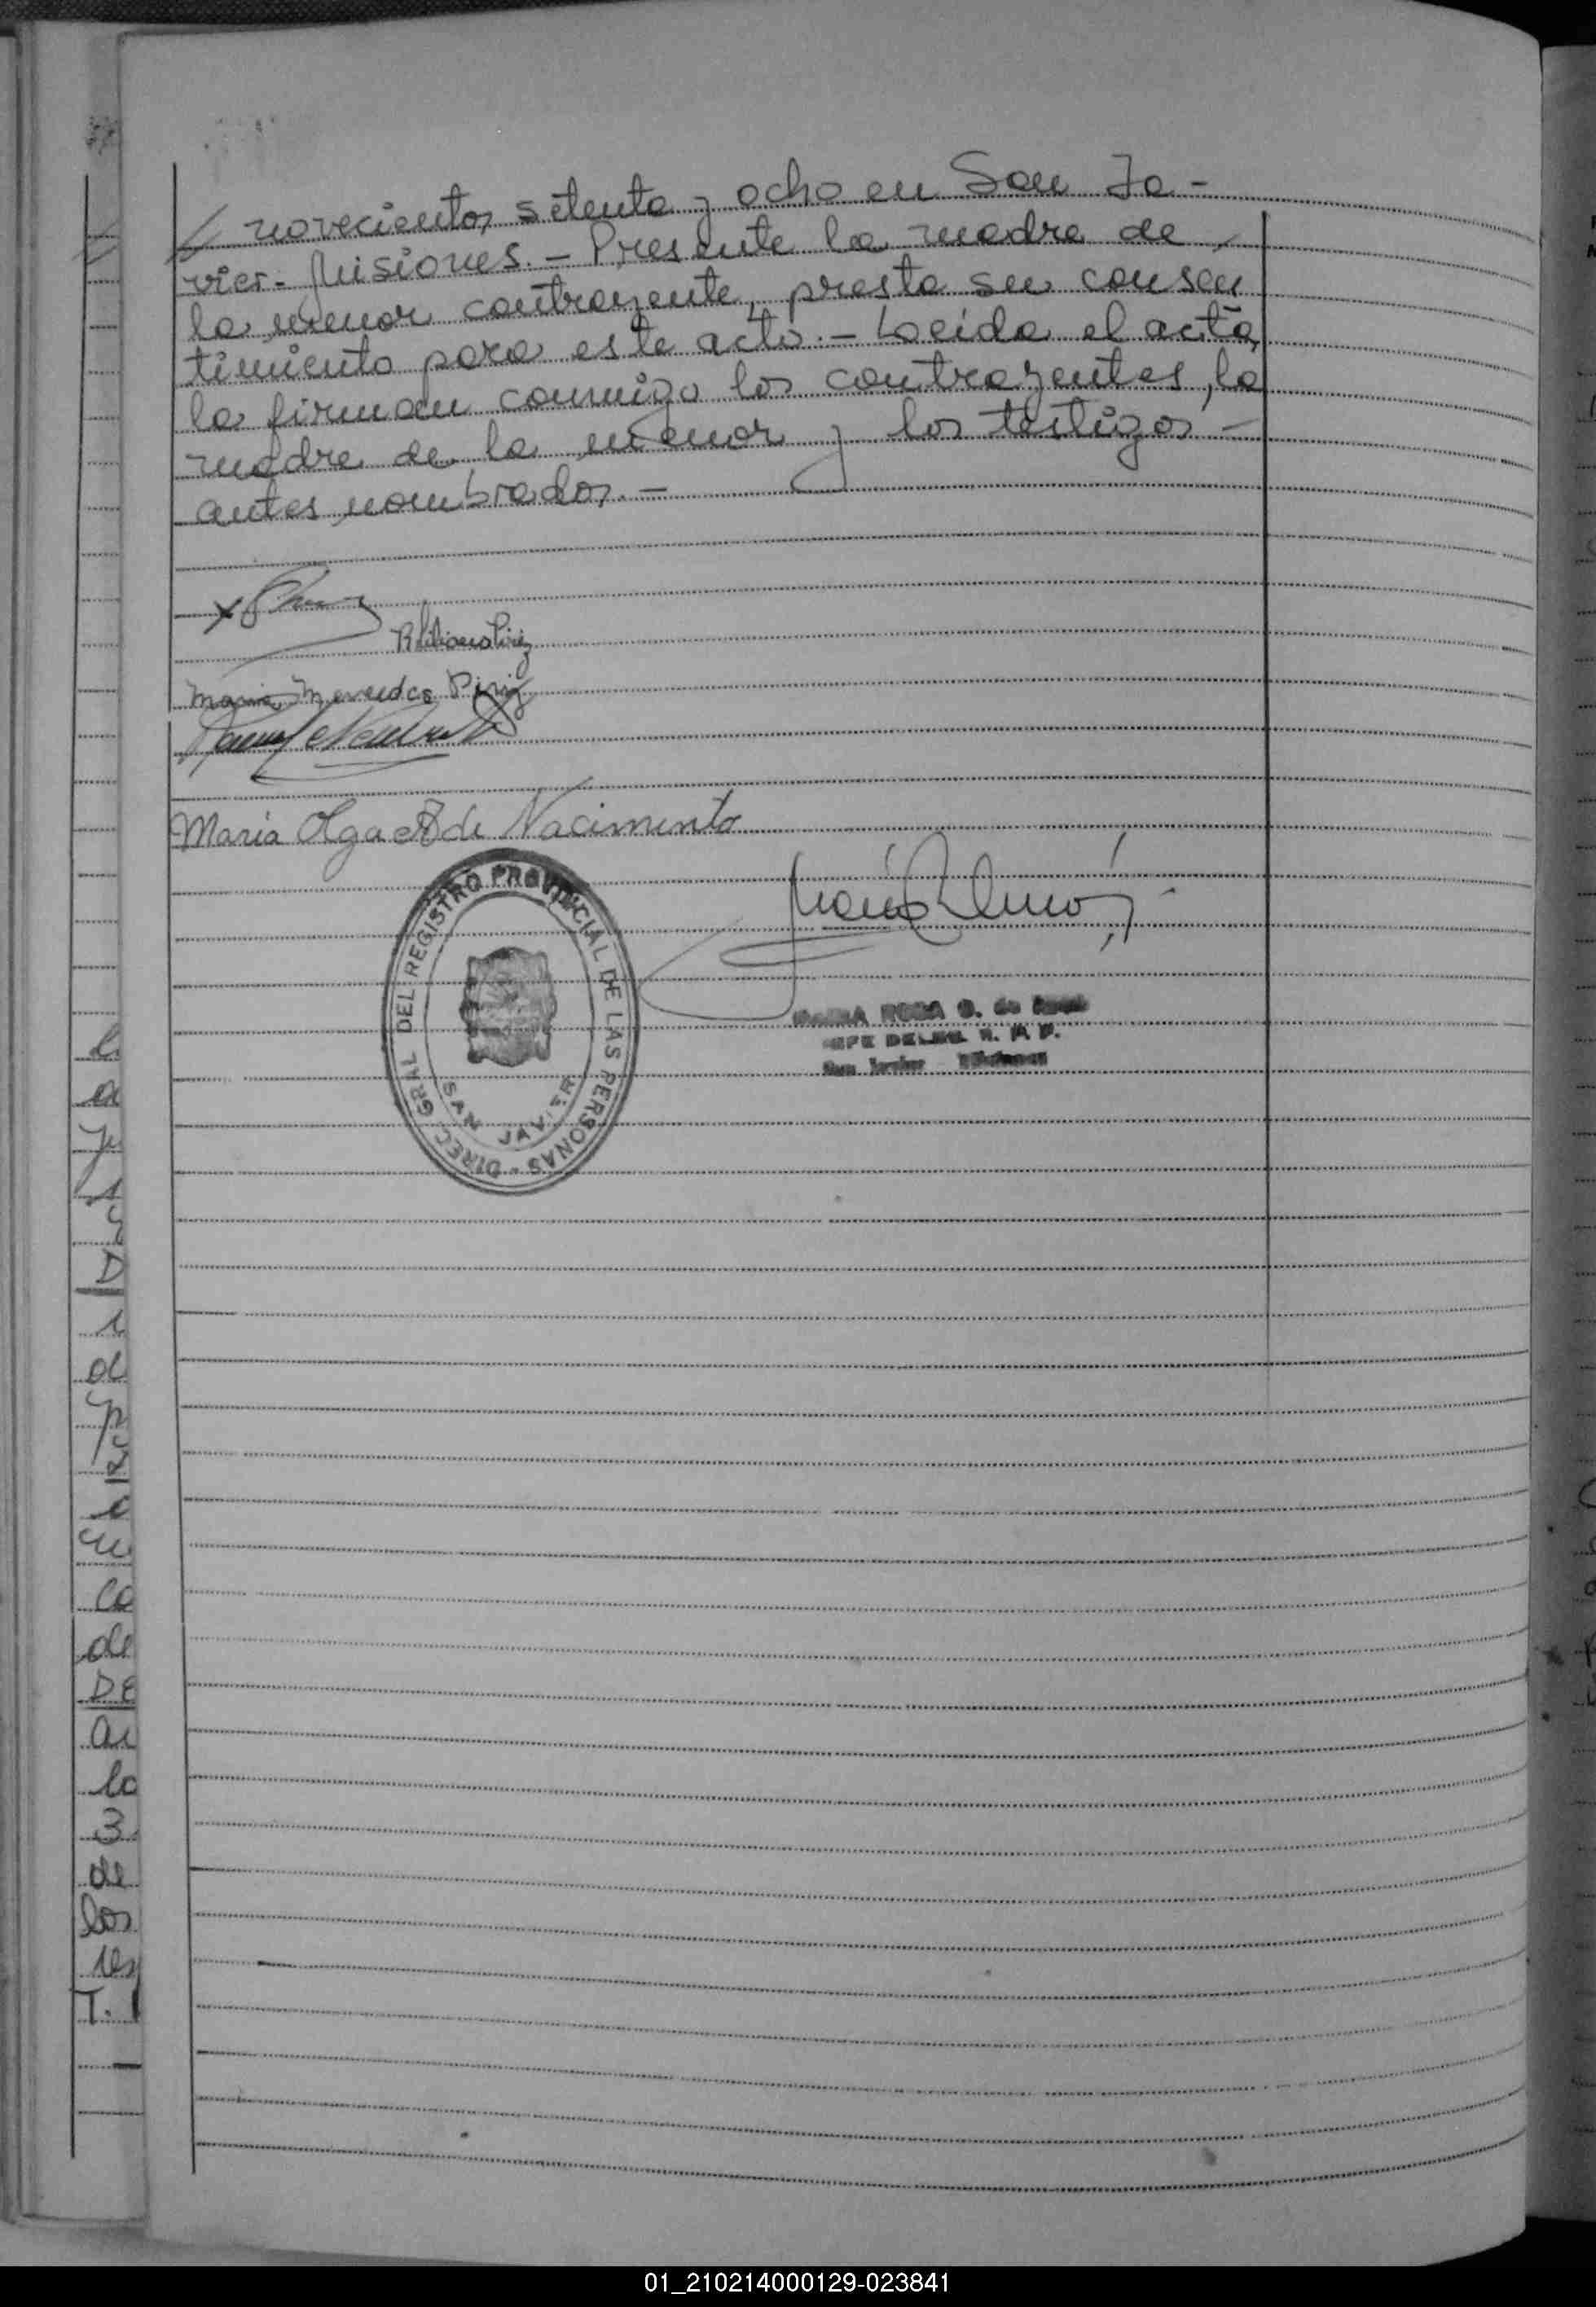 // novecientos setenta y ocho en San Ja-
vier- Misiones.- Presente la madre de
la menor contrayente, presta su consen
timiento para este acto.- Leida el acta,
la firman conmigo los contrayentes, la
madre de la menor y los testigos -
antes nombrados.-
x
Maria Mereudes Piriz
Maria Olga de Nacimento
DIREC. GRAL DEL REGISTRO PROVINCIAL DE LAS PERSONAS -
SAN JAVIER
MARIA ROSA G. de
JEFE DELEG. R. P. P.
San Javier - Misiones
D
de
DE
lo
3
de
los
T.
01_210214000129-023841